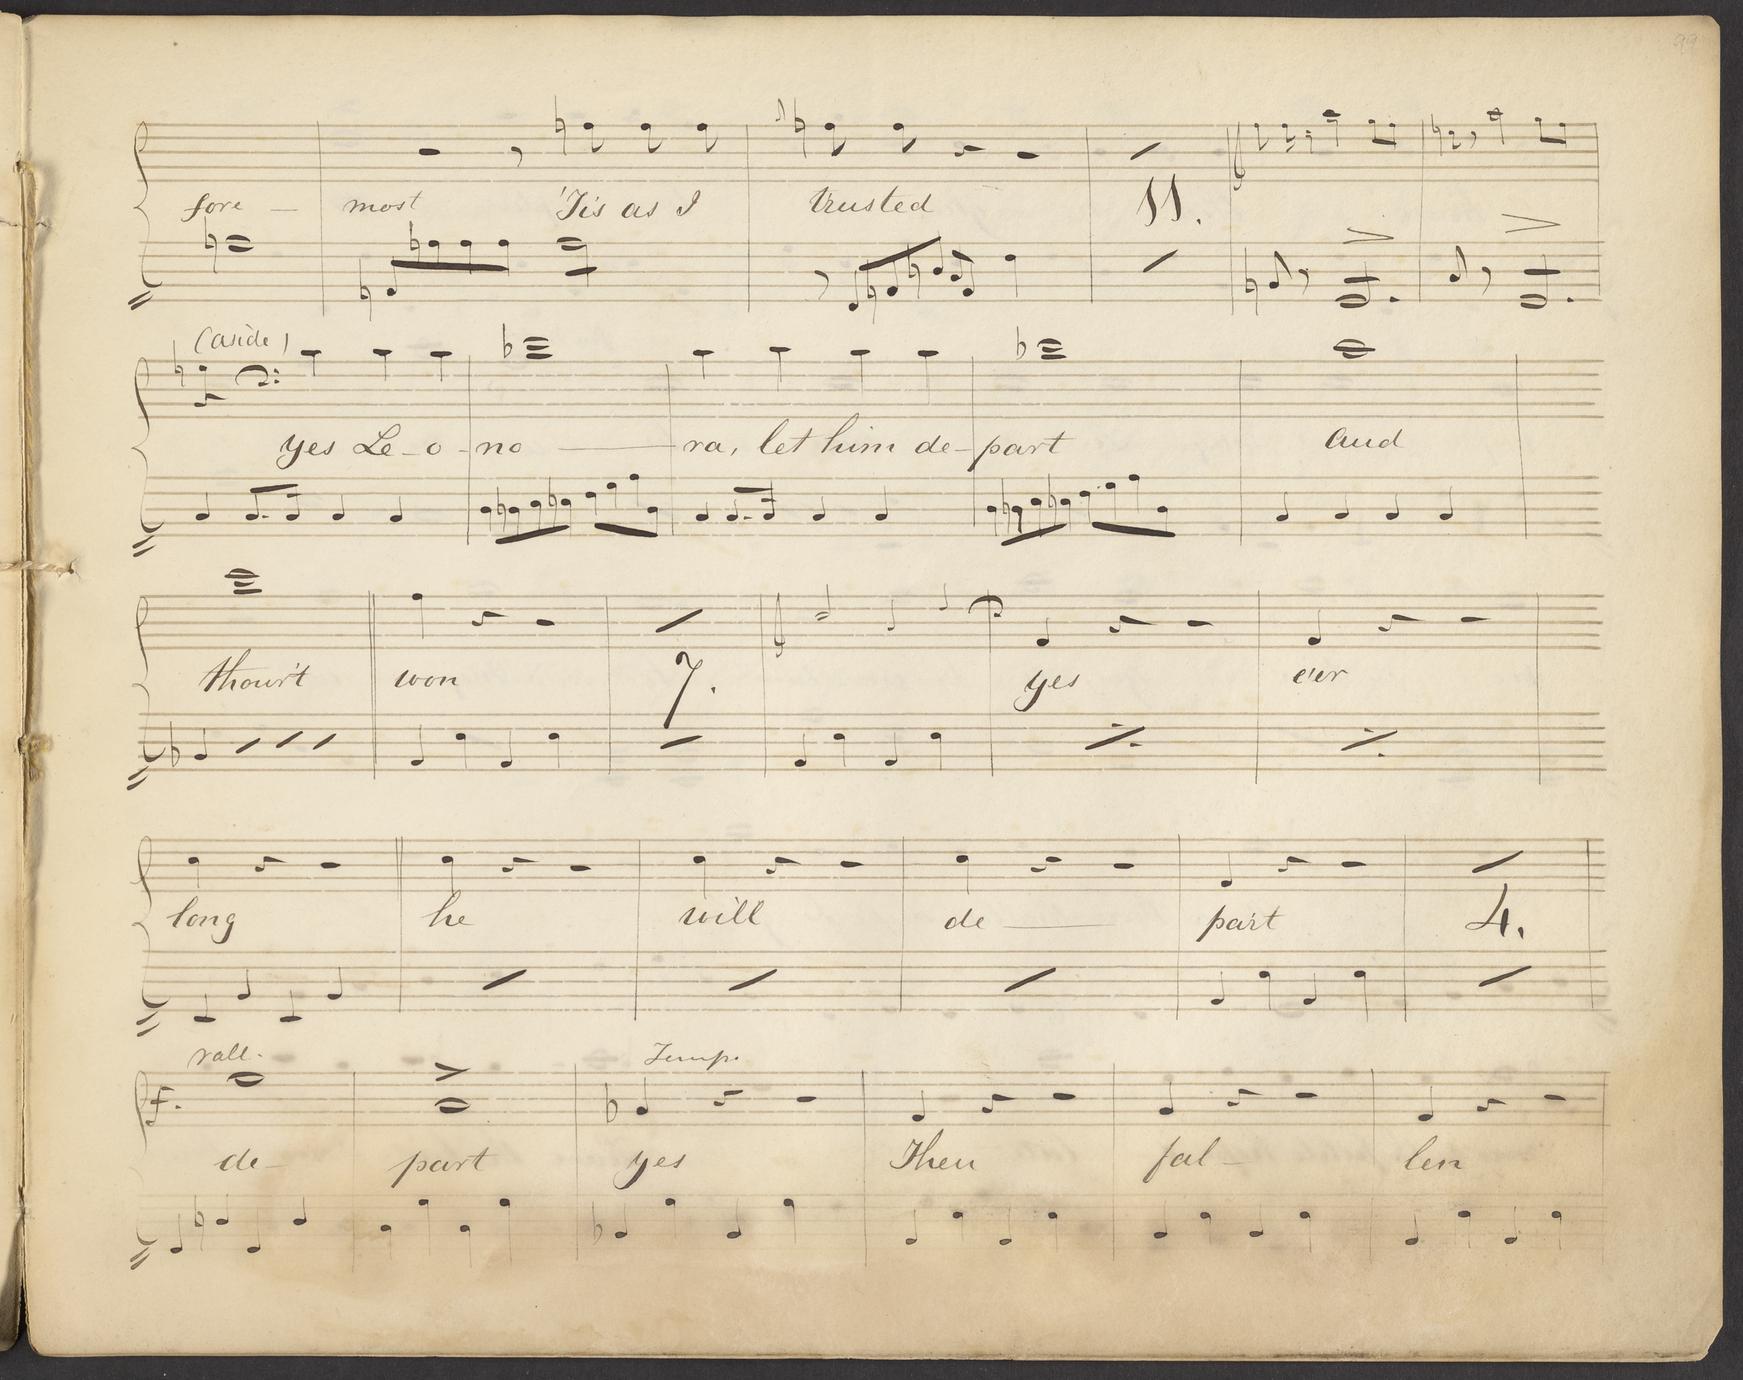 99
fore — most 'Tis as I trusted 11.
(aside)
yes Le-o-no — ra, let him de-part and
thour't won 7. yes e'er
long he will de — part 4.
rall. Temp.
f.
de- part yes Then fal- len